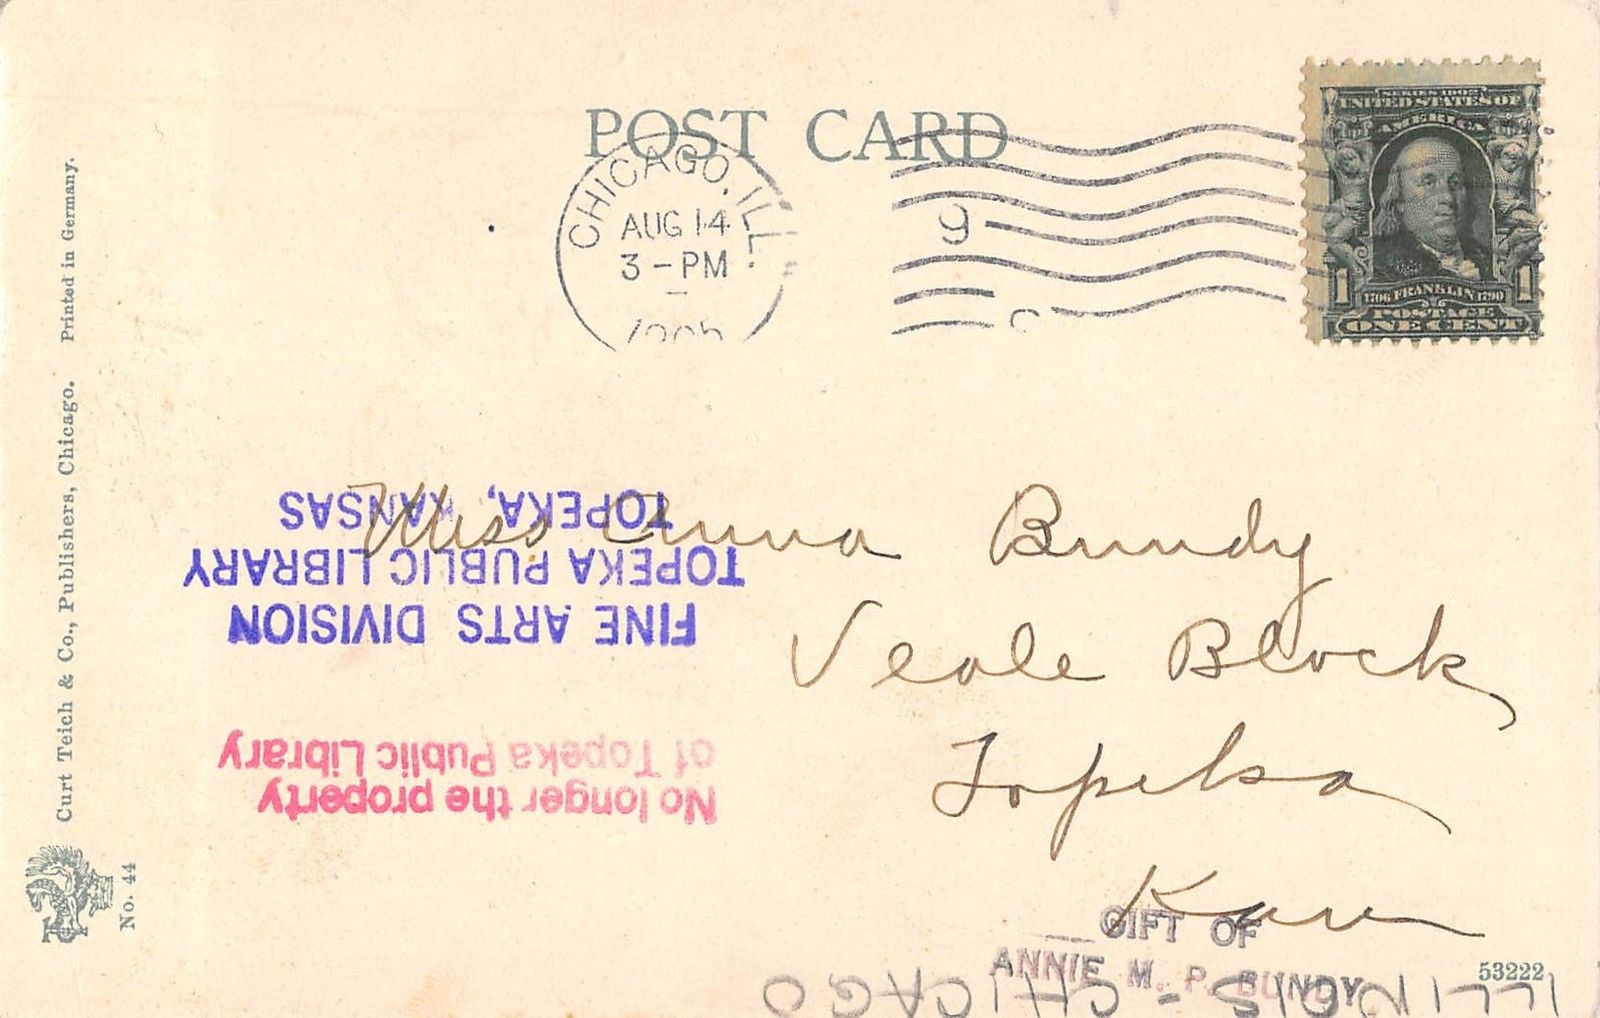 POST CARD
CHICAGO, ILL.
AUG 14
3 - PM
9
SERIES 1902
UNITED STATES OF
AMERICA
1 1706 FRANKLIN 1790 1
POSTAGE
ONE CENT
Curt Teich & Co., Publishers, Chicago. Printed in Germany.
No. 44
Miss Anna Bundy
Veale Block
Topeka
Kan
FINE ARTS DIVISION
TOPEKA PUBLIC LIBRARY
TOPEKA, KANSAS
No longer the property
of Topeka Public Library
GIFT OF
ANNIE M. P. BUNDY
53222
ILLINOIS - CHICAGO